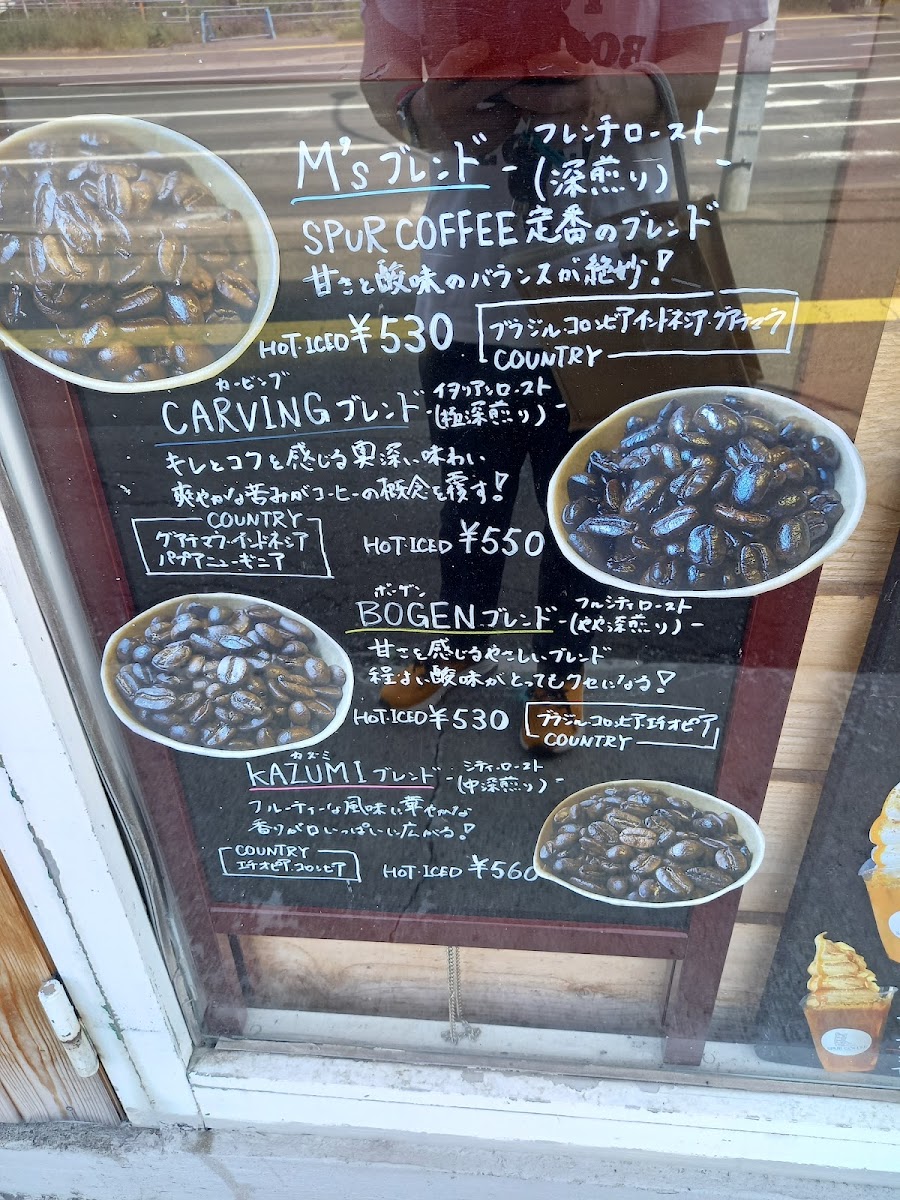 M'sブレンド - フレンチロースト -
(深煎り)
SPUR COFFEE 定番のブレンド
甘さと酸味のバランスが絶妙!
HOT・ICED ¥530
ブラジル・コロンビア・インドネシア・グアテマラ
COUNTRY
カービング
CARVINGブレンド - イタリアンロースト -
(極深煎り)
キレとコクを感じる奥深い味わい
爽やかな苦みがコーヒーの概念を覆す!
COUNTRY
グアテマラ・インドネシア
パプアニューギニア
HOT・ICED ¥550
ボーゲン
BOGENブレンド - フルシティロースト -
(やや深煎り)
甘さを感じるやさしいブレンド
程よい酸味がとってもクセになる!
HOT・ICED ¥530
ブラジル・コロンビア・エチオピア
COUNTRY
カズミ
KAZUMIブレンド - シティロースト -
(中深煎り)
フルーティーな風味に華やかな
香りが口いっぱいに広がる!
COUNTRY
エチオピア・コロンビア
HOT・ICED ¥560